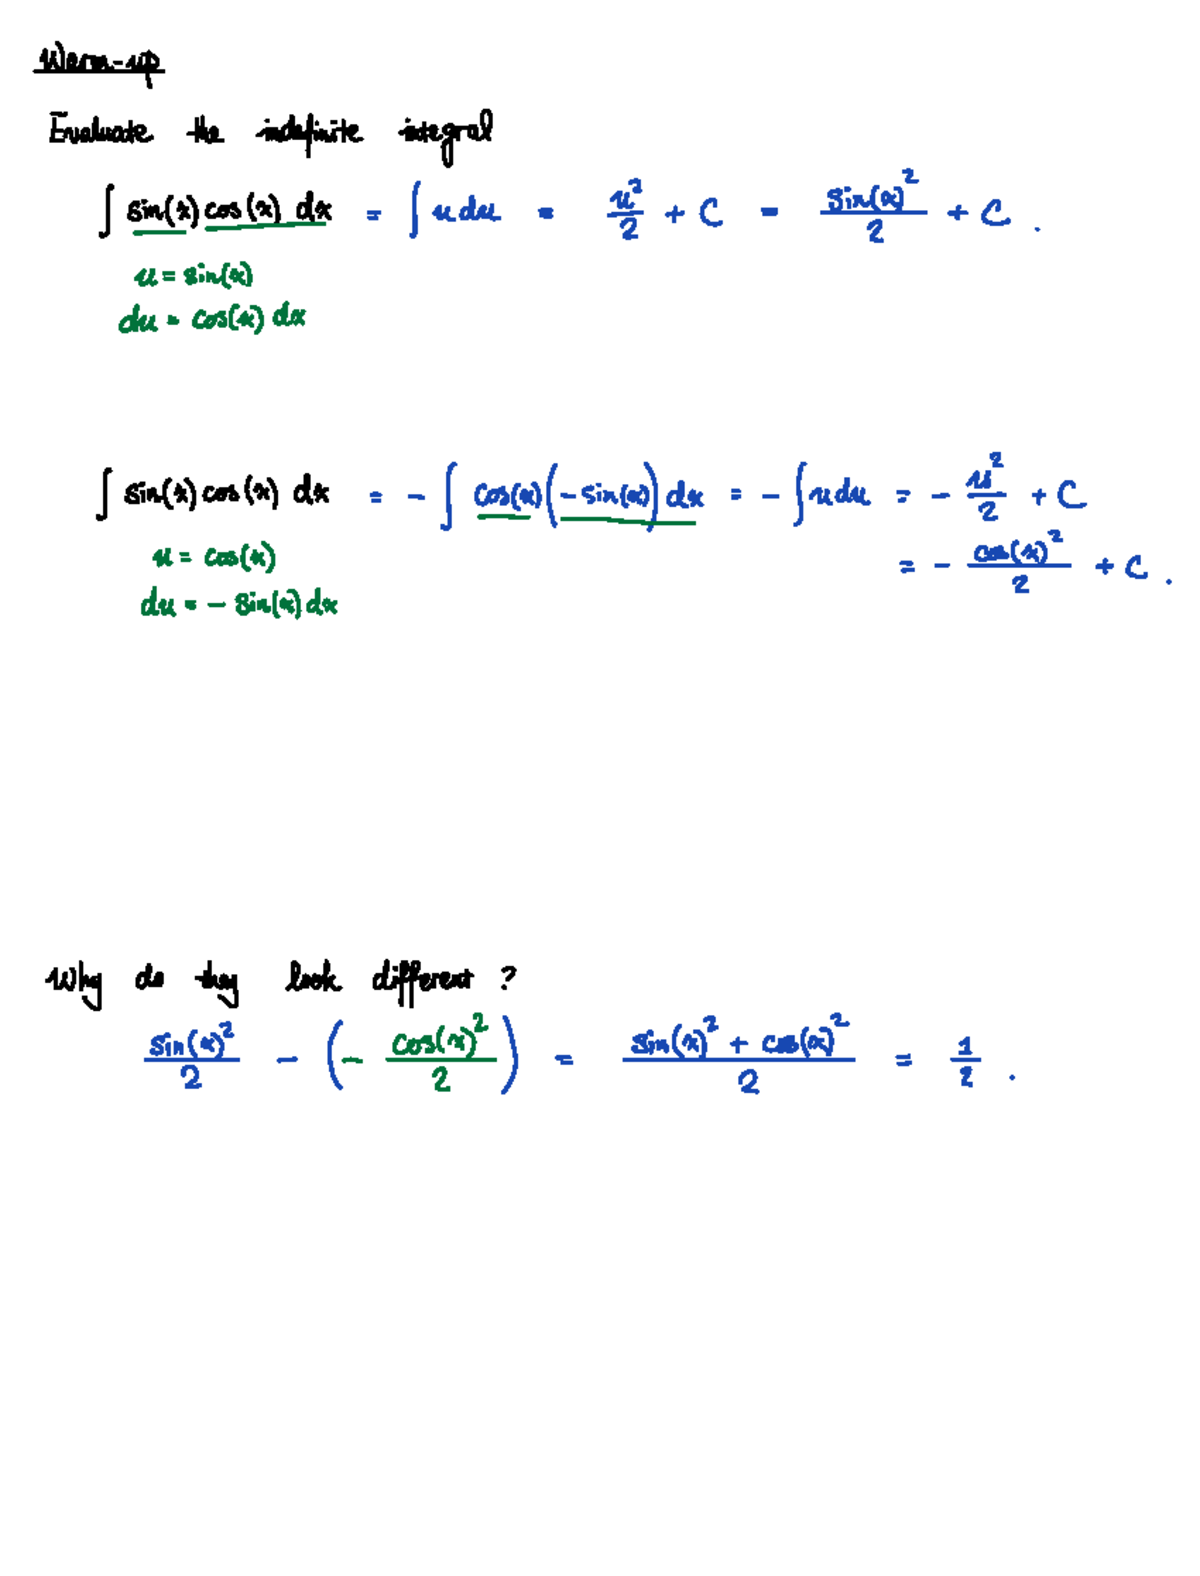 Warm-up
Evaluate the indefinite integral
∫ sin(x) cos(x) dx = ∫ u du = u²/2 + C = sin(x)²/2 + C .
u = sin(x)
du = cos(x) dx
∫ sin(x) cos(x) dx = - ∫ cos(x) (- sin(x)) dx = - ∫ u du = - u²/2 + C
u = cos(x)
= - cos(x)²/2 + C .
du = - sin(x) dx
Why do they look different ?
sin(x)²/2 - (- cos(x)²/2) = (sin(x)² + cos(x)²)/2 = 1/2 .